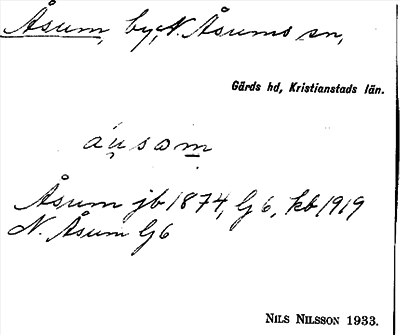 Åsum, by, N. Åsums sn,
Gärds hd, Kristianstads län.
áusɷm
Åsum jb 1874, Gj 6, kb 1919
N. Åsum Gj 6
NILS NILSSON 1933.